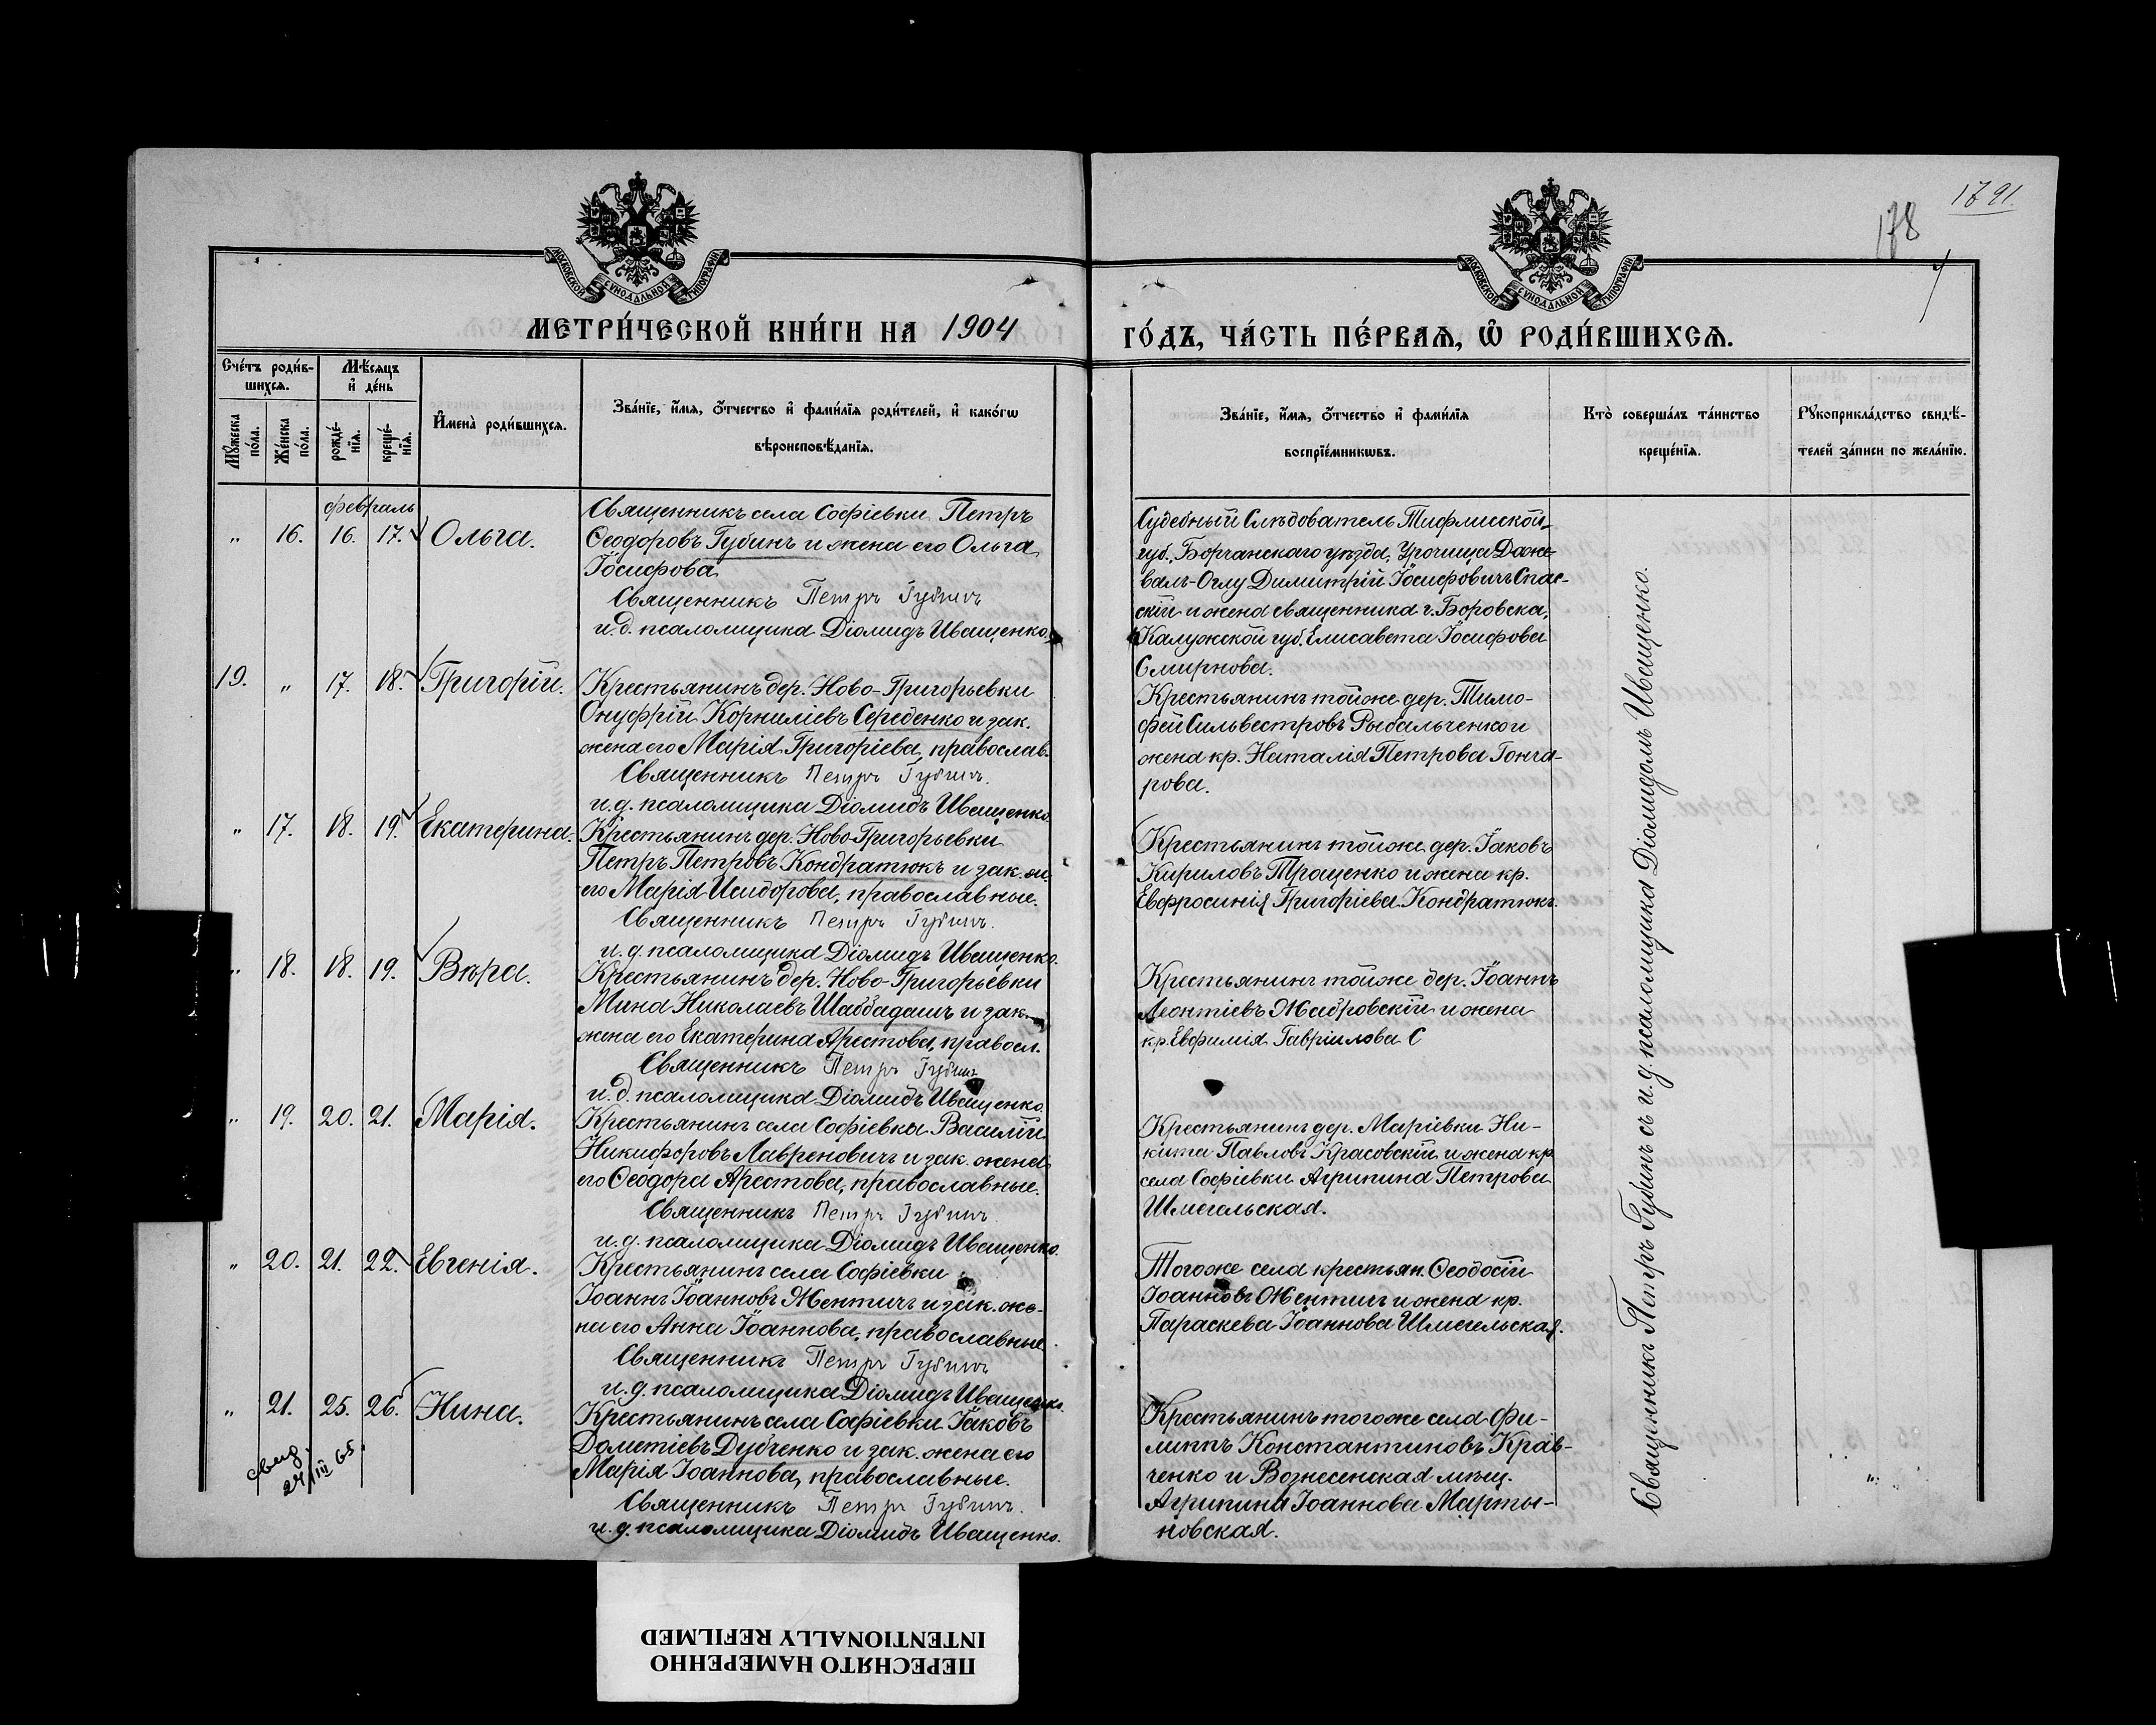 1791
178
МОСКОВСКОЙ СУНОДАЛЬНОЙ ТИПОГРАФІИ
МОСКОВСКОЙ СУНОДАЛЬНОЙ ТИПОГРАФІИ
МЕТРИ́ЧЕСКОЙ КНИ́ГИ НА 1904
ГО́ДЪ, ЧА́СТЬ ПЕ́РВАѦ, Ѽ РОДИ́ВШИХСѦ.
Сче́тъ роди́в-
шихсѧ.
Мѣ́сѧцъ
и҆ де́нь
Мꙋ́жеска
по́ла.
Же́нска
по́ла.
рожде́-
нїѧ.
креще́-
нїѧ.
И҆мена̀ роди́вшихсѧ.
Зва́нїе, и҆́мѧ, ѻ҆́тчество и҆ фами́лїѧ роди́телей, и҆ како́гѡ
вѣроисповѣ́данїѧ.
Зва́нїе, и҆́мѧ, ѻ҆́тчество и҆ фами́лїѧ
воспрїе́мникѡвъ.
Кто̀ соверша́лъ та́инство
креще́нїѧ.
Рꙋкоприкла́дство свидѣ́-
телей за́писи по жела́нїю.
февраль
„ 16. 16. 17. Ольга.
Священникъ села Софіевки Петръ
Ѳеодоровъ Губинъ и жена его Ольга
Іосифова
Священникъ Петръ Губинъ
и.д. псаломщика Діомидъ Иващенко.
Судебный Слѣдователь Тифлисской
губ., Борчанскаго уѣзда, Урочища Дже-
валъ-Оглу Димитрій Іосифовичъ Спас-
скій и жена священника г. Боровска,
Калужской губ. Елисавета Іосифова
Смирнова.
19. „ 17. 18. Григорій.
Крестьянинъ дер. Ново-Григорьевки
Онуфрій Корниліевъ Середенко и зак.
жена его Марія Григоріева, православ.
Священникъ Петръ Губинъ.
и.д. псаломщика Діомидъ Иващенко.
Крестьянинъ тойже дер. Тимо-
фей Сильвестровъ Рыбальченко и
жена кр. Наталія Петрова Гонча-
рова.
„ 17. 18. 19. Екатерина.
Крестьянинъ дер. Ново-Григорьевки
Петръ Петровъ Кондратюкъ и зак. ж.
его Марія Исидорова, православные.
Священникъ Петръ Губинъ.
и.д. псаломщика Діомидъ Иващенко.
Крестьянинъ тойже дер. Іаковъ
Кириловъ Троценко и жена кр.
Евфросинія Григоріева Кондратюкъ.
„ 18. 18. 19. Вѣра.
Крестьянинъ дер. Ново-Григорьевки
Мина Николаевъ Шаббадашъ и зак.
жена его Екатерина Арестова, правосл.
Священникъ Петръ Губинъ
и.д. псаломщика Діомидъ Иващенко.
Крестьянинъ тойже дер. Іоаннъ
Леонтіевъ Жабровскій и жена
кр. Евфимія Гавріилова С
„ 19. 20. 21. Марія.
Крестьянинъ села Софіевки Василій
Никифоровъ Лавреновичъ и зак. жена
его Ѳеодора Арестова, православные.
Священникъ Петръ Губинъ.
и.д. псаломщика Діомидъ Иващенко.
Крестьянинъ дер. Маріевки Ни-
кита Павловъ Красовскій и жена кр.
села Софіевки Агрипина Петрова
Шмегельская.
„ 20. 21. 22. Евгенія.
Крестьянинъ села Софіевки
Іоаннъ Іоанновъ Жентичъ и зак. же-
на его Анна Іоаннова, православные.
Священникъ Петръ Губинъ
и.д. псаломщика Діомидъ Иващенко.
Тогоже села крестьян. Ѳеодосій
Іоанновъ Жентичъ и жена кр.
Параскева Іоаннова Шмегельская.
„ 21. 25. 26. Нина.
Крестьянинъ села Софіевки Іаковъ
Дометіевъ Дубченко и зак. жена его
Марія Іоаннова, православные.
Священникъ Петръ Губинъ.
и.д. псаломщика Діомидъ Иващенко.
Крестьянинъ тогоже села Фи-
липпъ Константиновъ Крав-
ченко и Вознесенская мѣщ.
Агрипина Іоаннова Марты-
новская.
свид.
24/III 65.
Священникъ Петръ Губинъ съ и.д. псаломщика Діомидомъ Иващенко.
ПЕРЕСНЯТО НАМЕРЕННО
INTENTIONALLY REFILMED